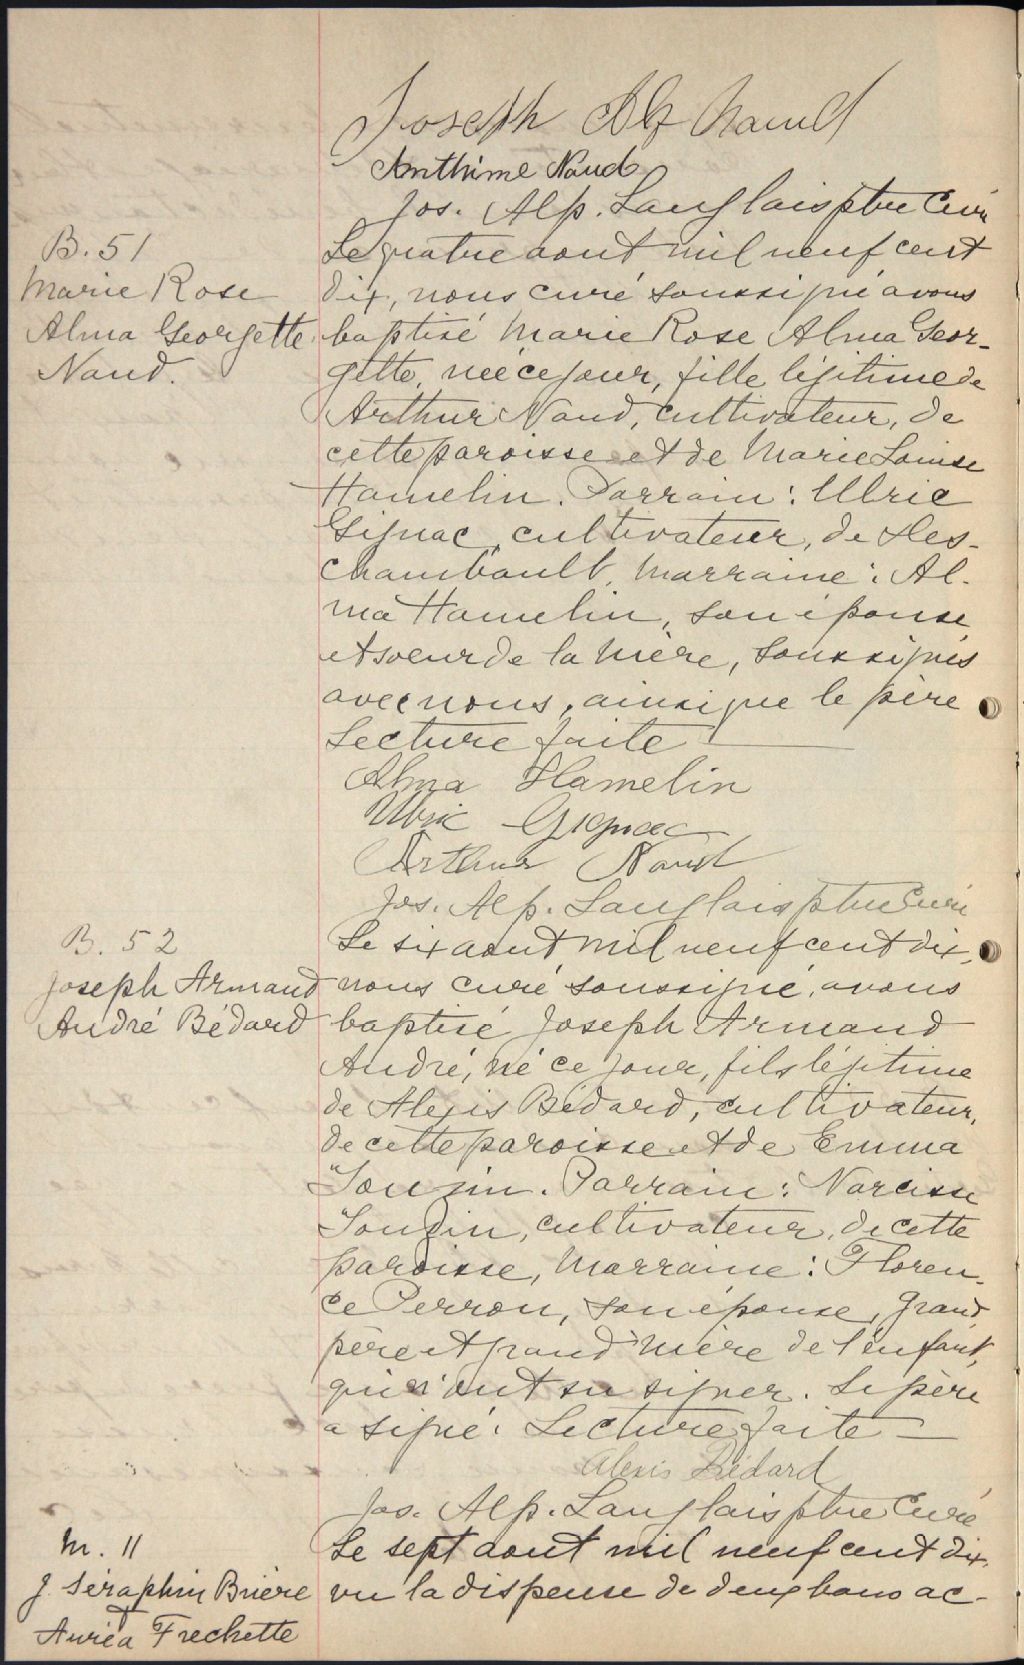 Joseph Alf Naud
Anthime Naud
Jos. Alp. Langlais ptre Curé
B. 51
Marie Rose
Alma Georgette
Naud.
Le quatre aout mil neuf cent
dix, nous curé soussigné avons
baptisé Marie Rose Alma Geor-
gette, née ce jour, fille légitime de
Arthur Naud, cultivateur, de
cette paroisse et de Marie Louise
Hamelin. Parrain: Ulric
Gignac, cultivateur, de Des-
chambault, Marraine: Al-
ma Hamelin, son épouse
et soeur de la mère, soussignés
avec nous, ainsi que le père
Lecture faite
Alma Hamelin
Ulric Gignac
Arthur Naud
Jos. Alp. Langlais ptre Curé
B. 52
Joseph Armand
André Bédard
Le six aout mil neuf cent dix,
nous curé soussigné, avons
baptisé Joseph Armand
André, né ce jour, fils légitime
de Alexis Bédard, cultivateur,
de cette paroisse et de Emma
Parrain: Narcisse
cultivateur, de cette
paroisse, Marraine: Floren-
ce Perron, son épouse, grand
père et grand'mère de l'enfant,
qui n'ont su signer. Le père
a signé. Lecture faite
Alexis Bédard
Jos. Alp. Langlais ptre Curé
M. 11
J. Séraphin Brière
&
Auréa Frechette
Le sept aout mil neuf cent dix,
vu la dispense de deux bans ac-